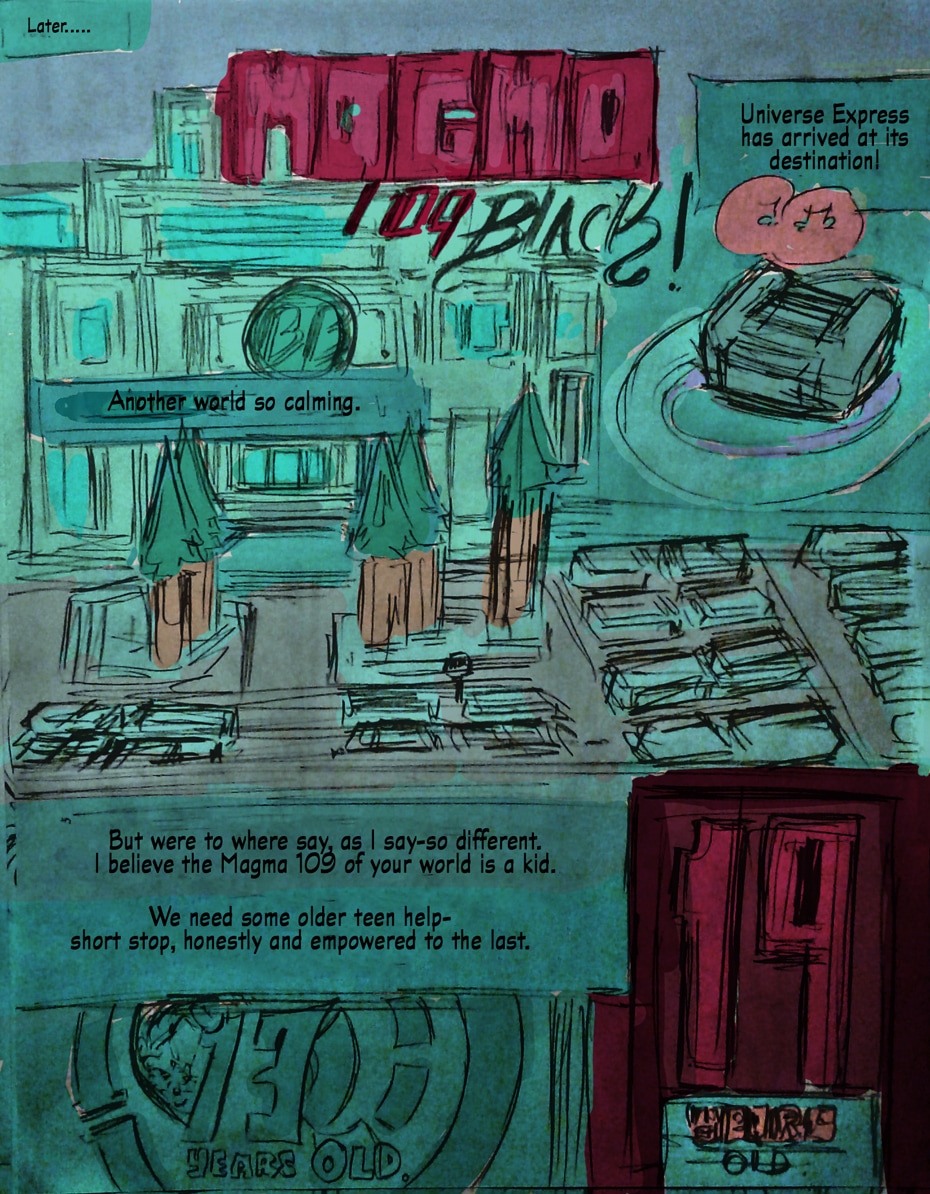 Later.....
MAGMA
109 BLACK!
Universe Express
has arrived at its
destination!
Another world so calming.
But were to where say, as I say-so different.
I believe the Magma 109 of your world is a kid.
We need some older teen help-
short stop, honestly and empowered to the last.
YEARS OLD.
YEARS
OLD